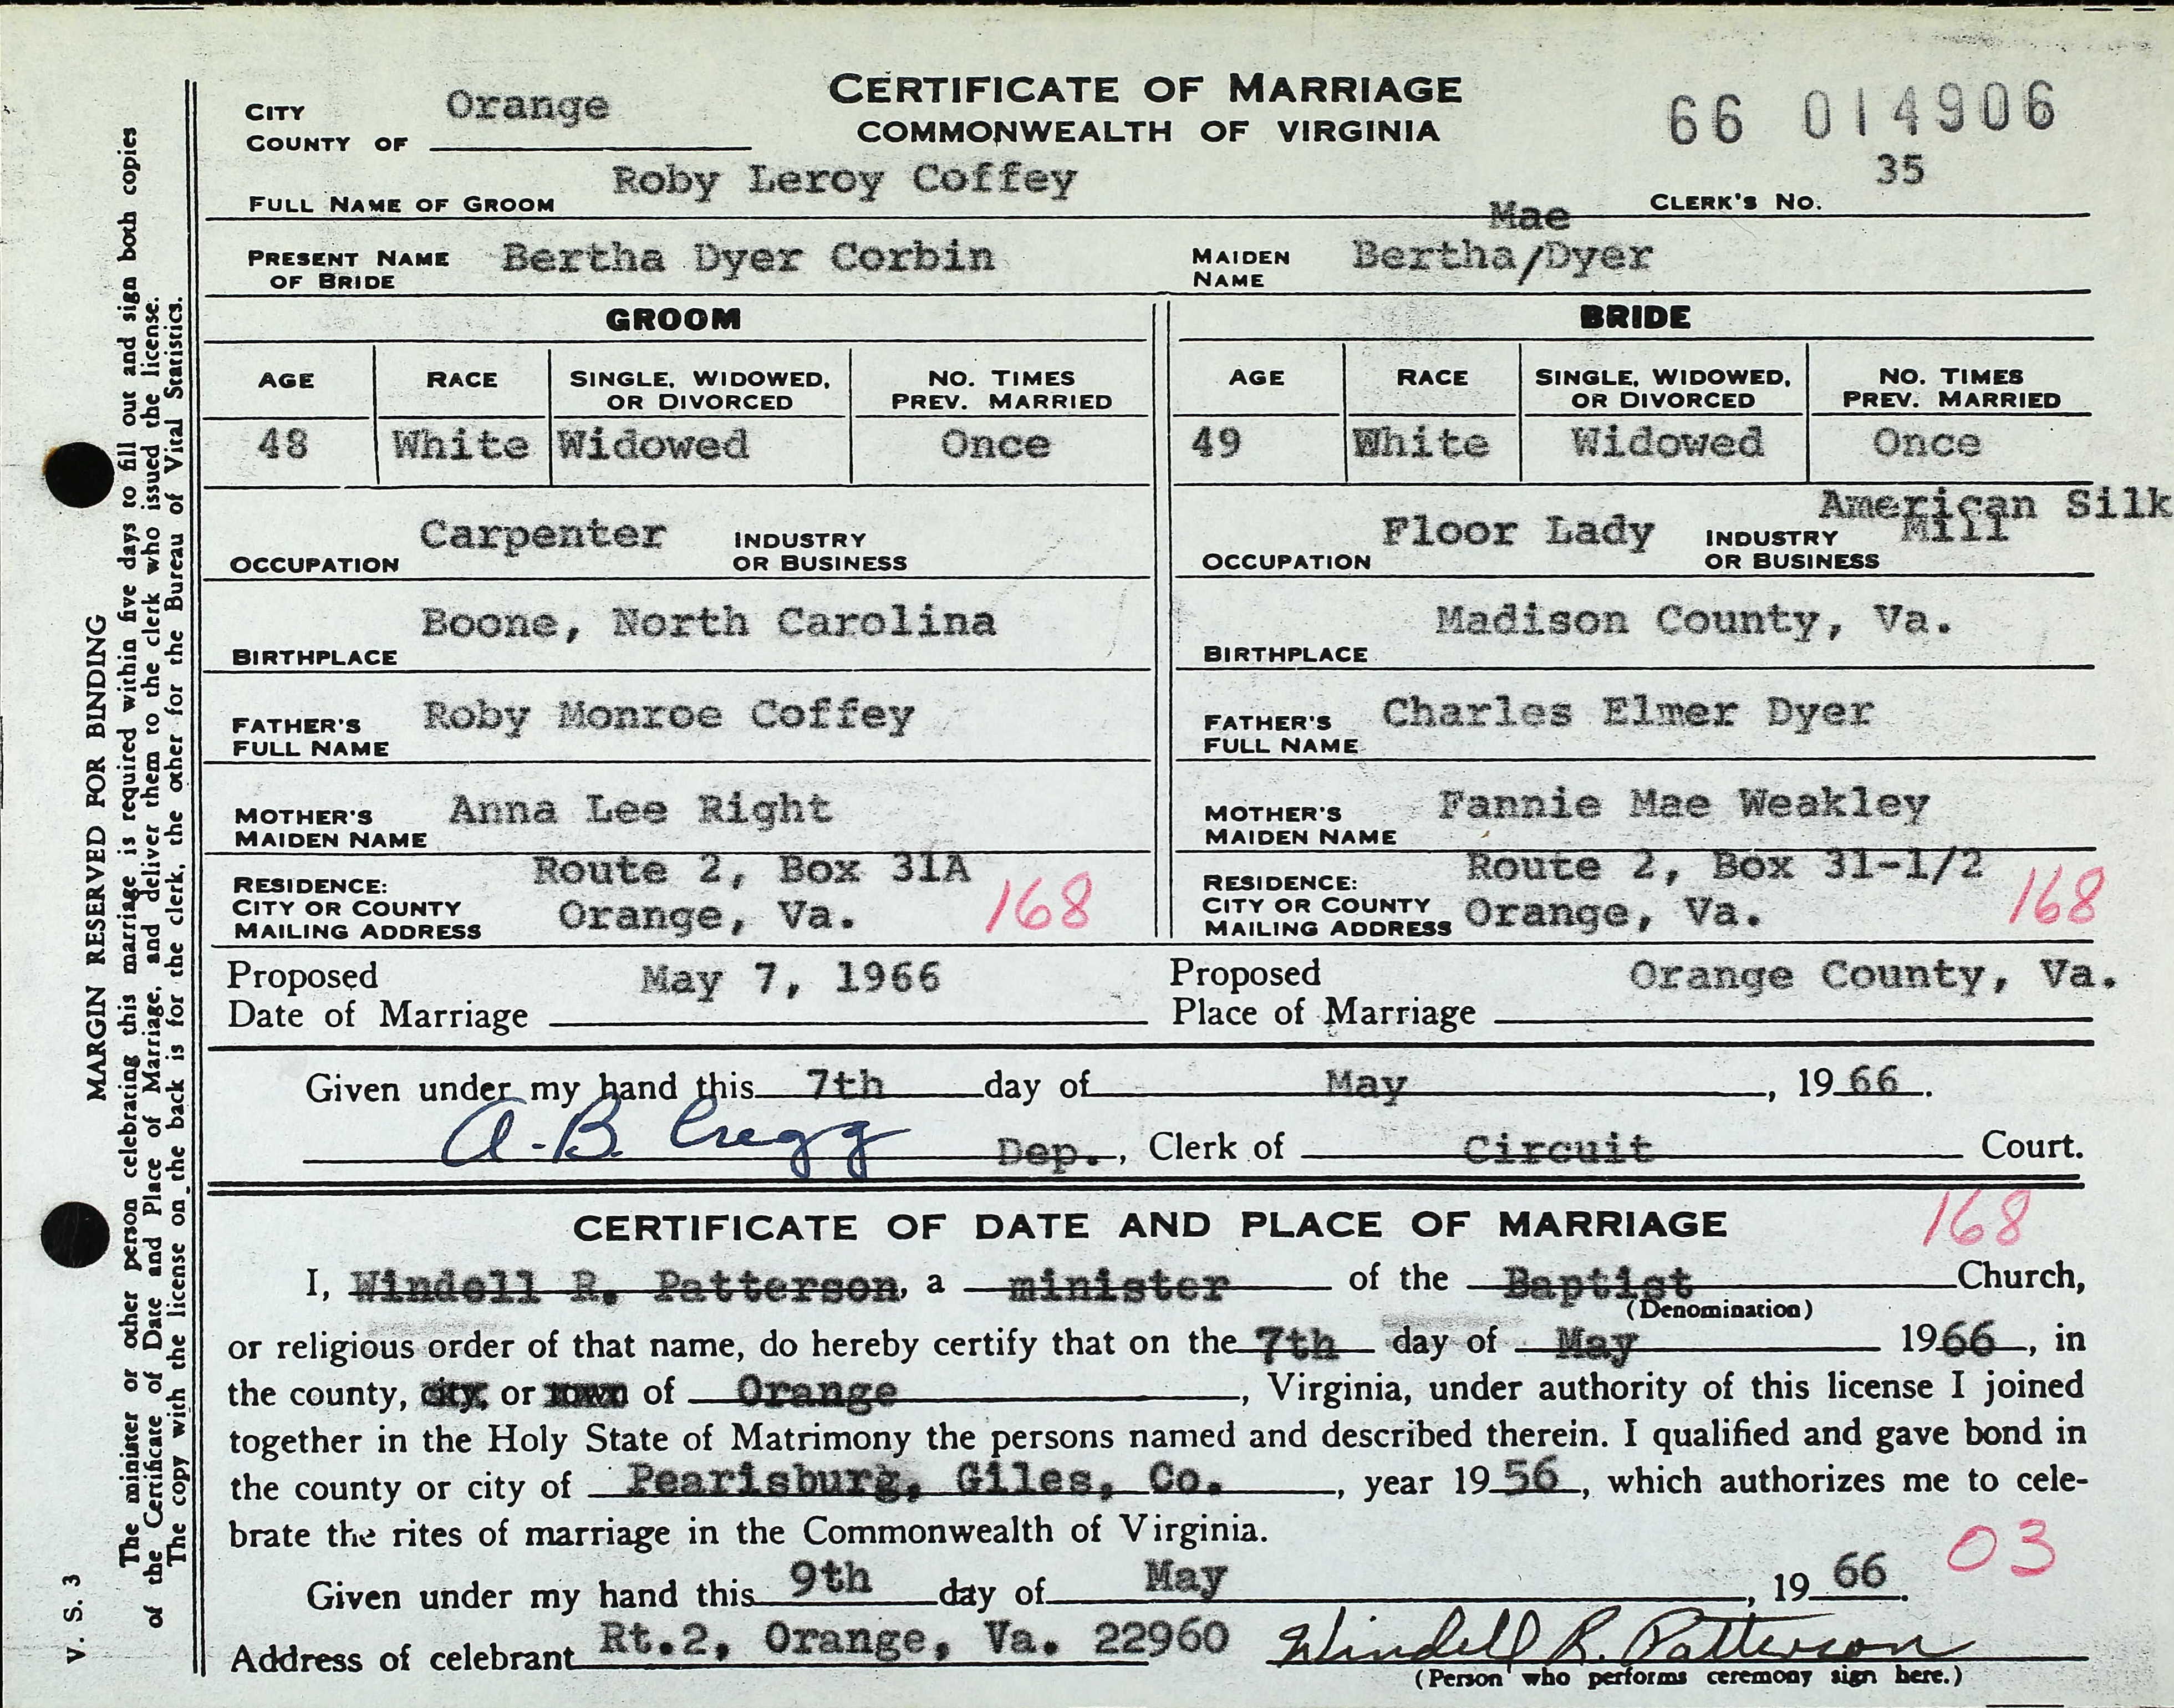 CERTIFICATE OF MARRIAGE
COMMONWEALTH OF VIRGINIA
CITY
COUNTY OF Orange
66 014906
35
CLERK'S NO.
FULL NAME OF GROOM Roby Leroy Coffey
PRESENT NAME OF BRIDE Bertha Dyer Corbin
Mae
MAIDEN NAME Bertha/Dyer
GROOM
BRIDE
AGE RACE SINGLE, WIDOWED, OR DIVORCED NO. TIMES PREV. MARRIED
48 White Widowed Once
AGE RACE SINGLE, WIDOWED, OR DIVORCED NO. TIMES PREV. MARRIED
49 White Widowed Once
OCCUPATION Carpenter INDUSTRY OR BUSINESS
OCCUPATION Floor Lady INDUSTRY OR BUSINESS American Silk Mill
BIRTHPLACE Boone, North Carolina
BIRTHPLACE Madison County, Va.
FATHER'S FULL NAME Roby Monroe Coffey
FATHER'S FULL NAME Charles Elmer Dyer
MOTHER'S MAIDEN NAME Anna Lee Right
MOTHER'S MAIDEN NAME Fannie Mae Weakley
RESIDENCE: CITY OR COUNTY MAILING ADDRESS Route 2, Box 31A Orange, Va. 168
RESIDENCE: CITY OR COUNTY MAILING ADDRESS Route 2, Box 31-1/2 Orange, Va. 168
Proposed Date of Marriage May 7, 1966
Proposed Place of Marriage Orange County, Va.
Given under my hand this 7th day of May, 1966.
A. B. Gregg Dep., Clerk of Circuit Court.
CERTIFICATE OF DATE AND PLACE OF MARRIAGE
168
I, Windell R. Patterson, a minister of the Baptist Church,
(Denomination)
or religious order of that name, do hereby certify that on the 7th day of May 1966, in
the county, city, or town of Orange, Virginia, under authority of this license I joined
together in the Holy State of Matrimony the persons named and described therein. I qualified and gave bond in
the county or city of Pearisburg, Giles, Co., year 1956, which authorizes me to cele-
brate the rites of marriage in the Commonwealth of Virginia.
03
Given under my hand this 9th day of May, 1966.
Address of celebrant Rt.2, Orange, Va. 22960 Windell R. Patterson
(Person who performs ceremony sign here.)
MARGIN RESERVED FOR BINDING
The minister or other person celebrating this marriage is required within five days to fill out and sign both copies
of the Certificate of Date and Place of Marriage, and deliver them to the clerk who issued the license.
The copy with the license on the back is for the clerk, the other for the Bureau of Vital Statistics.
V. S. 3